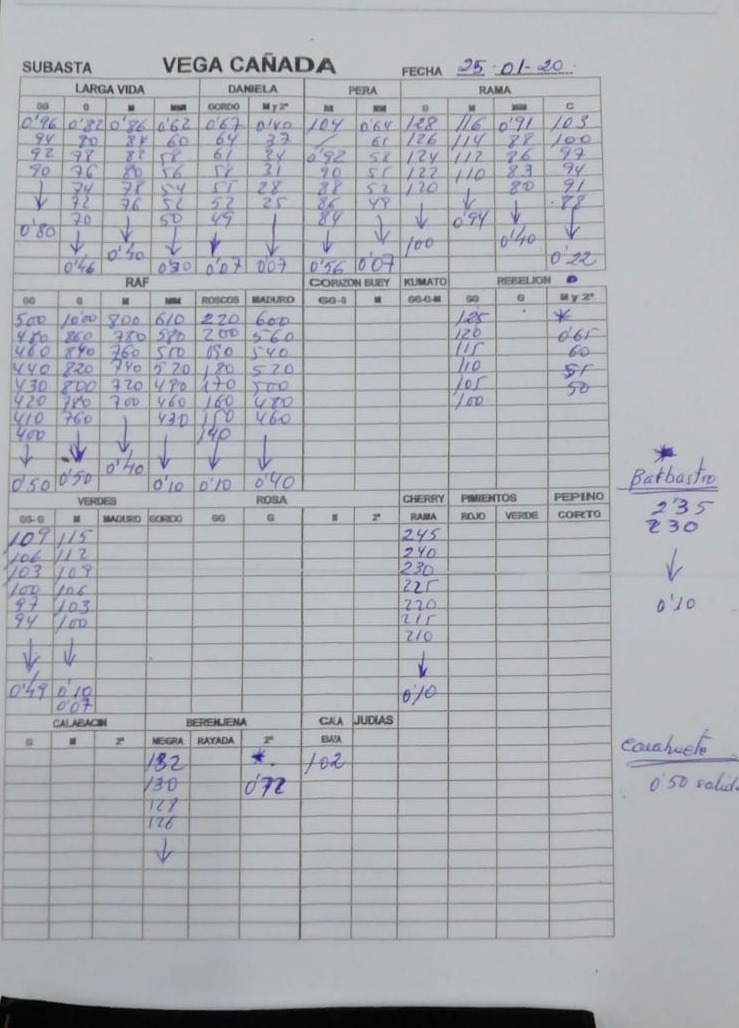 SUBASTA VEGA CAÑADA FECHA 25-01-20.
LARGA VIDA DANIELA PERA RAMA
GG G M MM GORDO M y 2ª M MM G M MM C
0'96 0'82 0'86 0'62 0'67 0'40 104 0'64 128 116 0'91 103
94 80 84 60 64 37 / 61 126 114 88 100
92 78 82 58 61 34 0'92 58 124 112 86 97
90 76 80 56 58 31 90 55 122 110 83 94
↓ 74 78 54 55 28 88 52 120 ↓ 80 91
72 76 52 52 25 86 49 ↓ 0'94 ↓ 88
0'80 70 ↓ 50 49 ↓ 84 ↓ 100 0'40 ↓
↓ 0'40 ↓ ↓ ↓ 0'22
0'46 0'30 0'07 0'07 0'56 0'07
RAF CORAZON BUEY KUMATO REBELION
GG G M MM ROSCOS MADURO GG-G M GG-G-M GG G M y 2ª
500 1000 800 610 220 600 125 *
480 860 780 580 200 560 120 0'65
460 840 760 550 190 540 115 60
440 820 740 520 180 520 110 55
430 800 720 490 170 500 105 50
420 780 700 460 160 480 100
410 760 ↓ 430 150 460
400 ↓ ↓ 140 ↓
↓ 0'50 0'40 ↓
0'50 0'10 0'10 0'40
*
Barbastro
2'35
230
↓
0'10
VERDES ROSA CHERRY PIMIENTOS PEPINO
GG-G M MADURO GORDO GG G M 2ª RAMA ROJO VERDE CORTO
109 115 245
106 112 240
103 109 230
100 106 225
97 103 220
94 100 215
↓ ↓ 210
↓
0'49 0'10 0'10
0'07
CALABACIN BERENJENA CALA JUDIAS
G M 2ª NEGRA RAYADA 2ª BAZA
132 * 102
130 0'72
128
126
↓
Cacahuete
0'50 salida